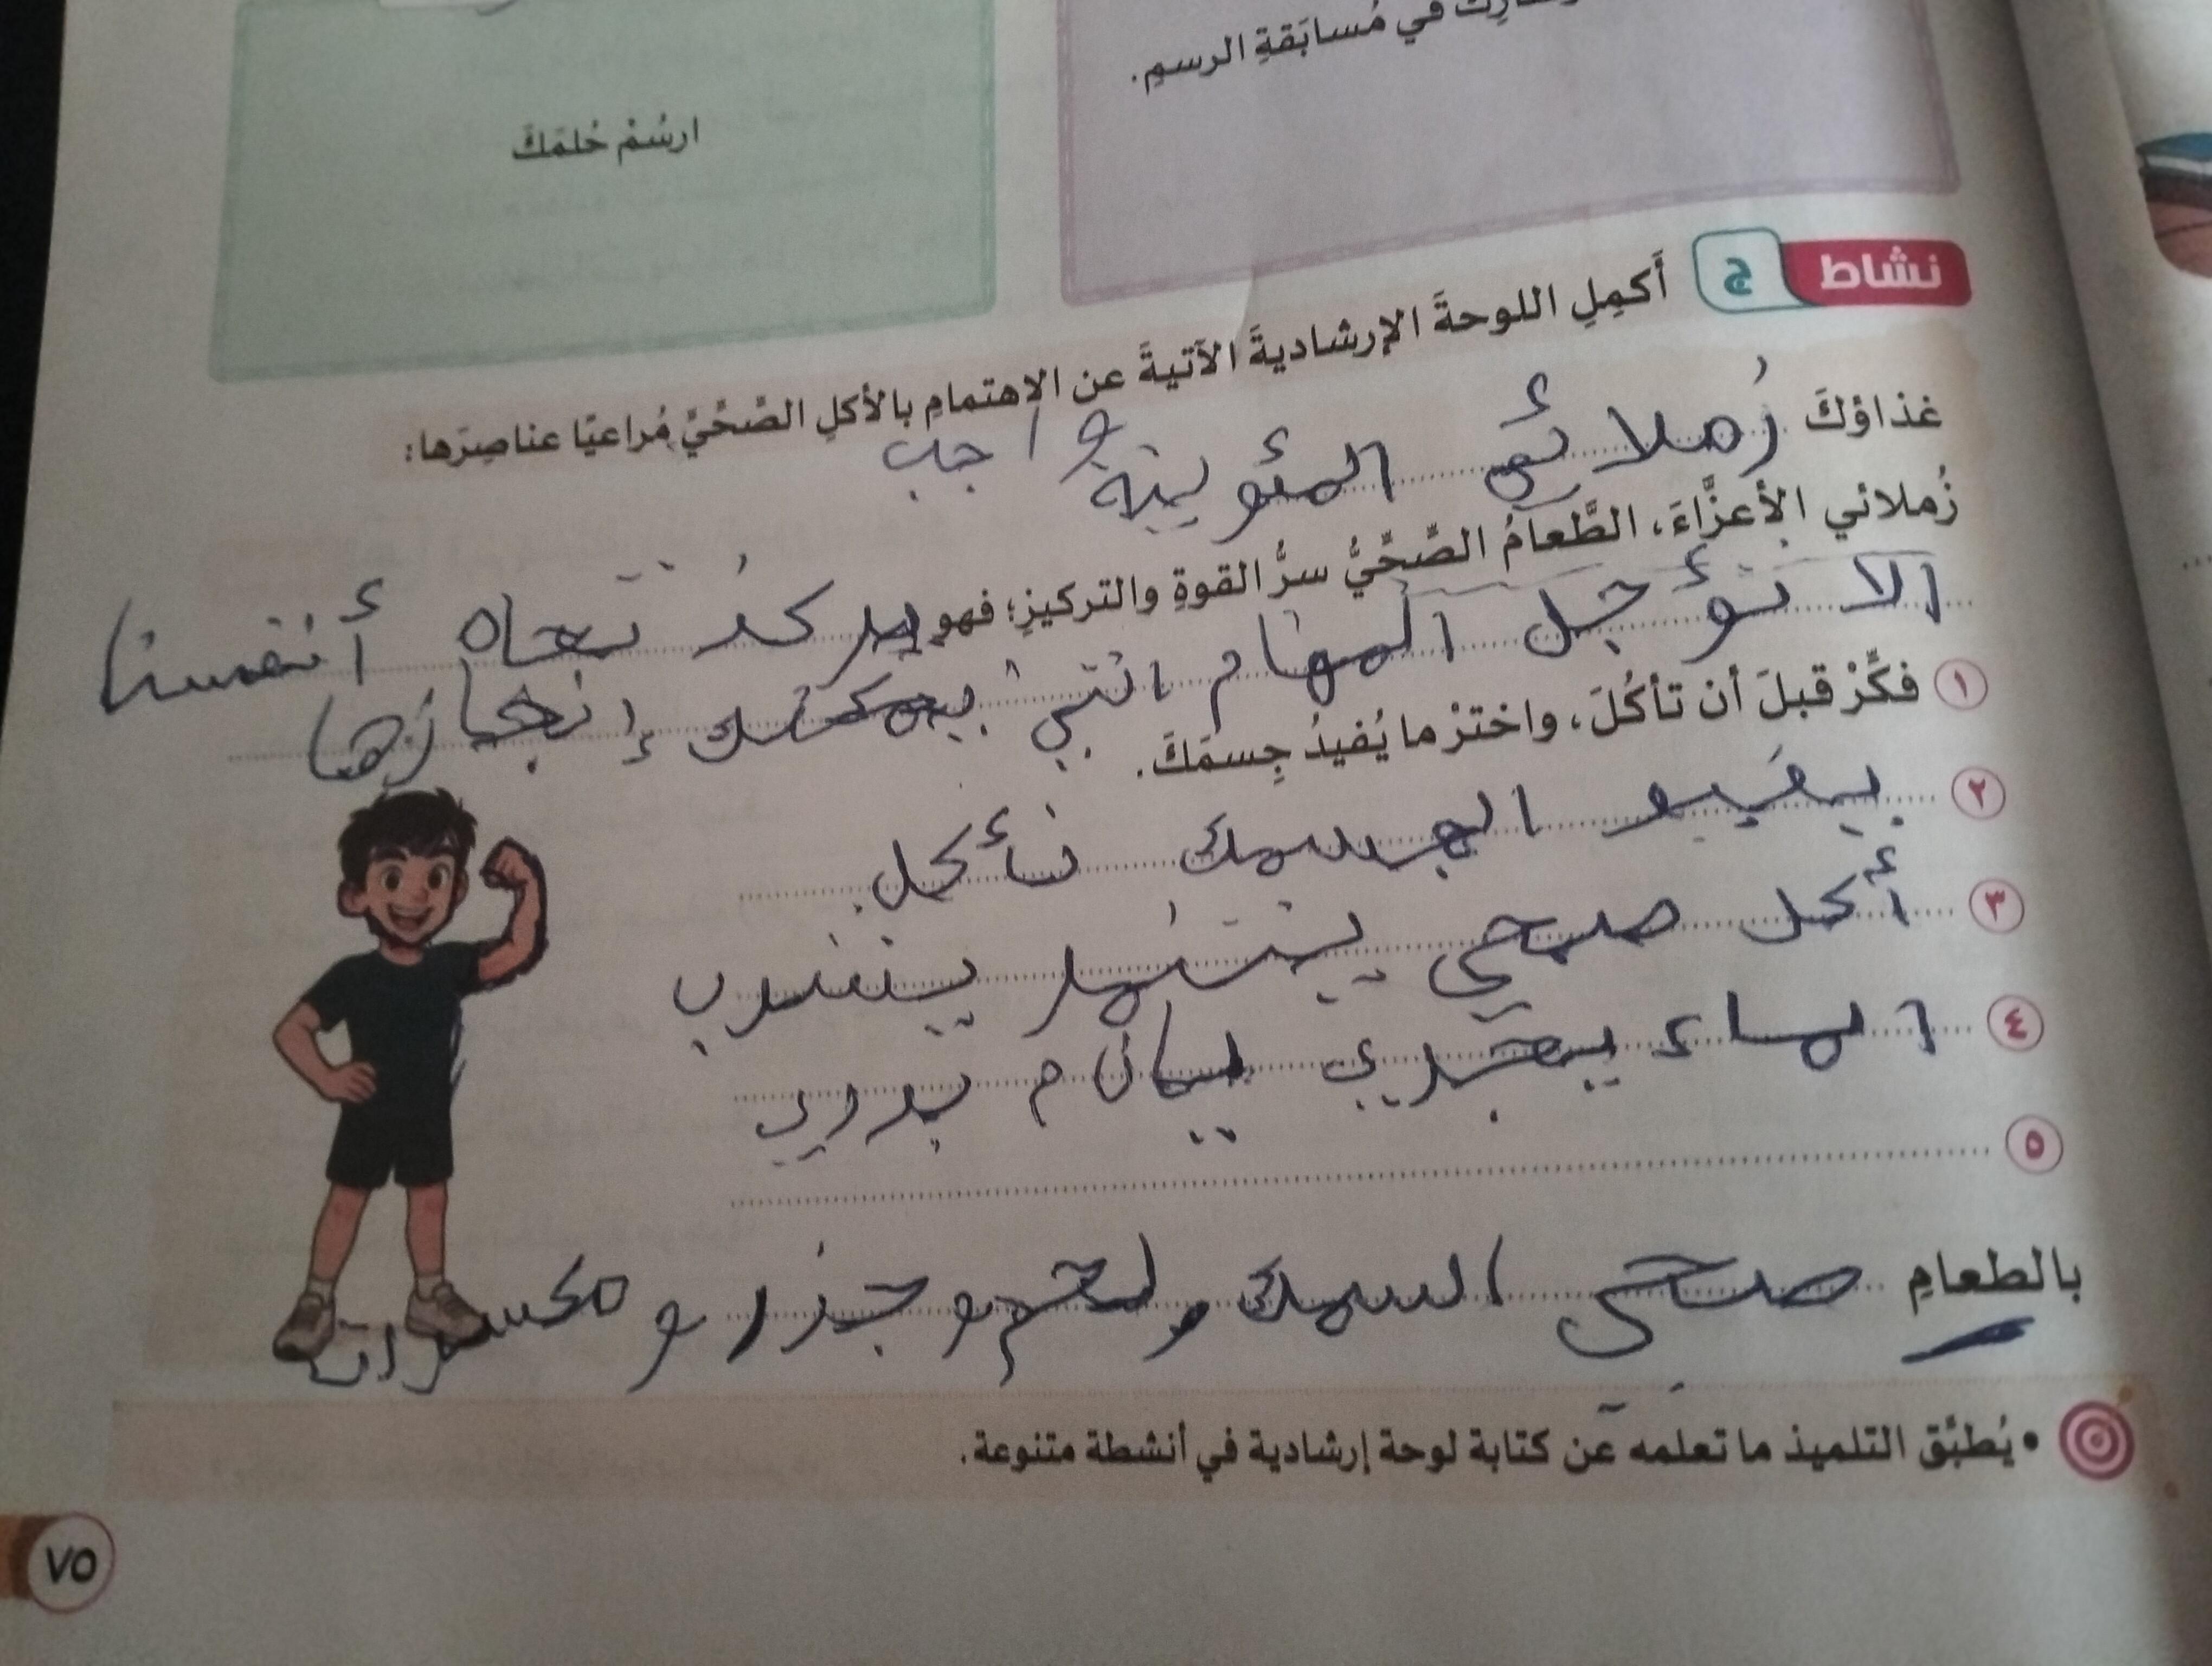 في مُسابَقةِ الرسمِ.
ارسُمْ حُلمَكَ
نشاط ج أَكمِلِ اللوحةَ الإرشاديةَ الآتيةَ عن الاهتمامِ بالأكلِ الصِّحِّيِّ مُراعيًا عناصِرَها:
غذاؤكَ زُملائي واجب
زُملائي الأعزَّاءَ، الطَّعامُ الصِّحِّيُّ سرُّ القوةِ والتركيزِ؛ فهو تجاه أنفسنا
الا تؤجل المهام التي يمكنك إنجازها
١ فكِّرْ قبلَ أن تأكُلَ، واخترْ ما يُفيدُ جِسمَكَ.
٢ يفيد الجسمك نأكل.
٣ أكل صحي
٤ الماء
٥
بالطعامِ صحى السمك ولحم وجزر و مكسرات
• يُطبِّق التلميذ ما تعلمه عن كتابة لوحة إرشادية في أنشطة متنوعة.
٧٥